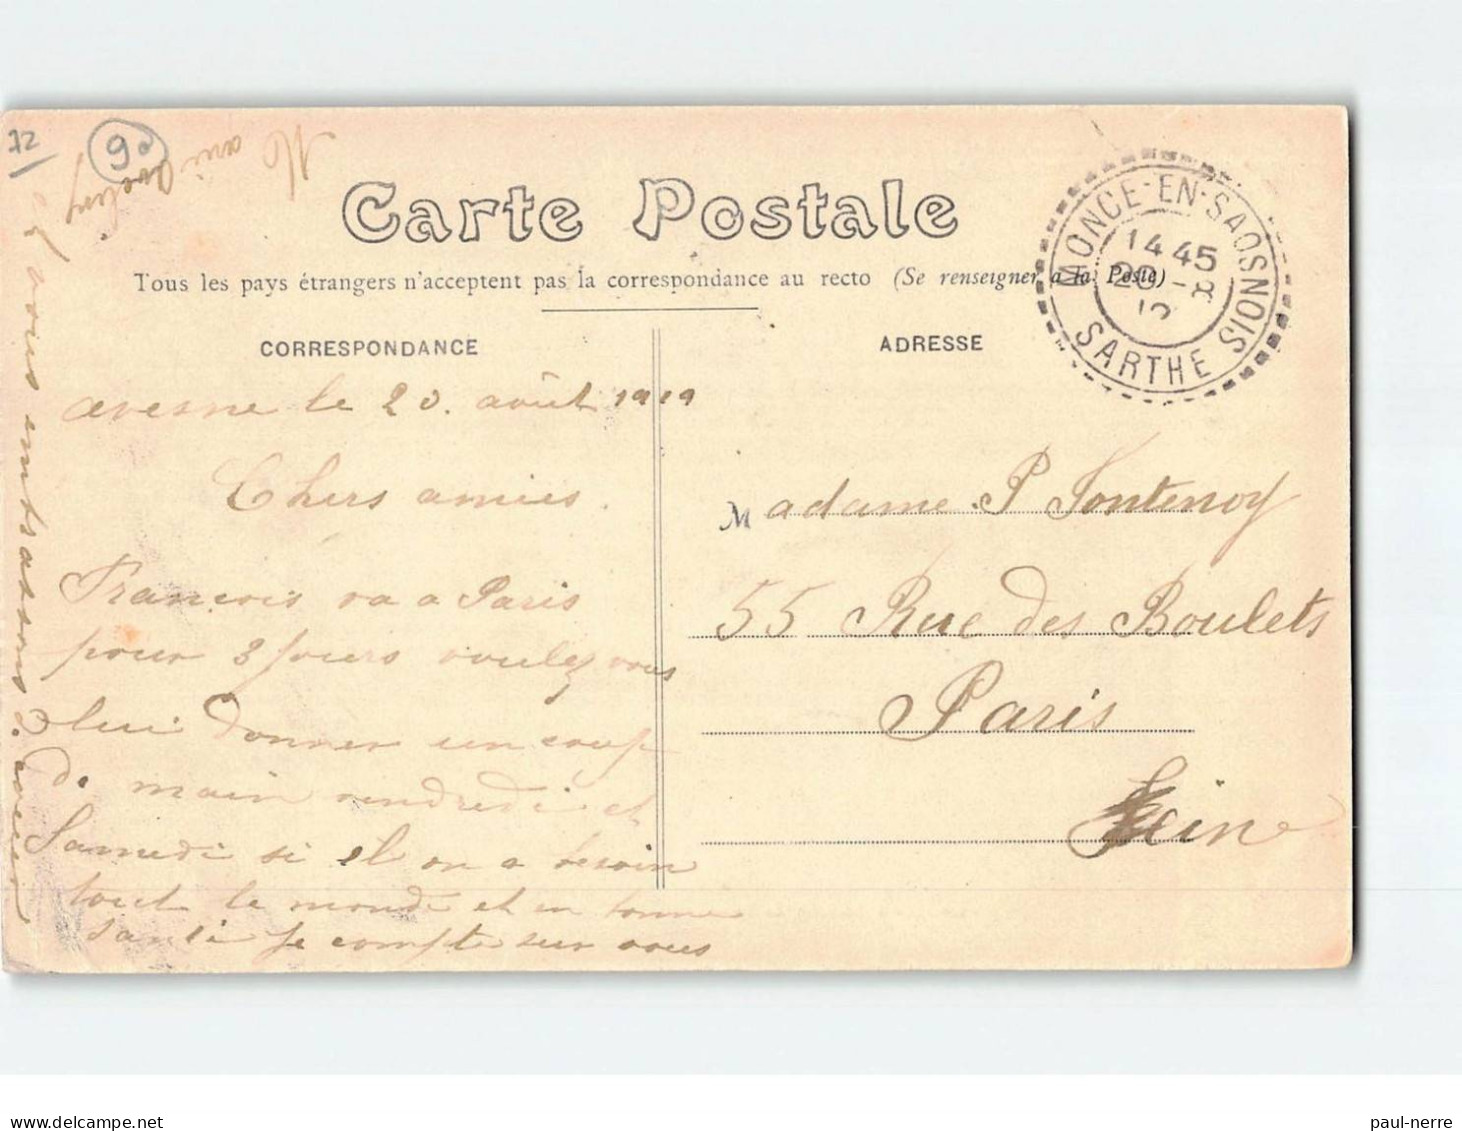 72
9e
Carte Postale
Tous les pays étrangers n'acceptent pas la correspondance au recto (Se renseigner à la Poste)
MONCE-EN-SAOSNOIS
14 45
20 -8
SARTHE
CORRESPONDANCE
ADRESSE
avesne le 20. août 1919
Chers amies.
Francois va a Paris
pour 3 jours voulez vous
lui donner un coup
de main vendredi et
Samedi si il on a besoin
tout le monde et en bonne
santé je compte sur vous
vous embrassons
Madame P Fontenoy
55 Rue des Boulets
Paris
Seine
paul-nerre